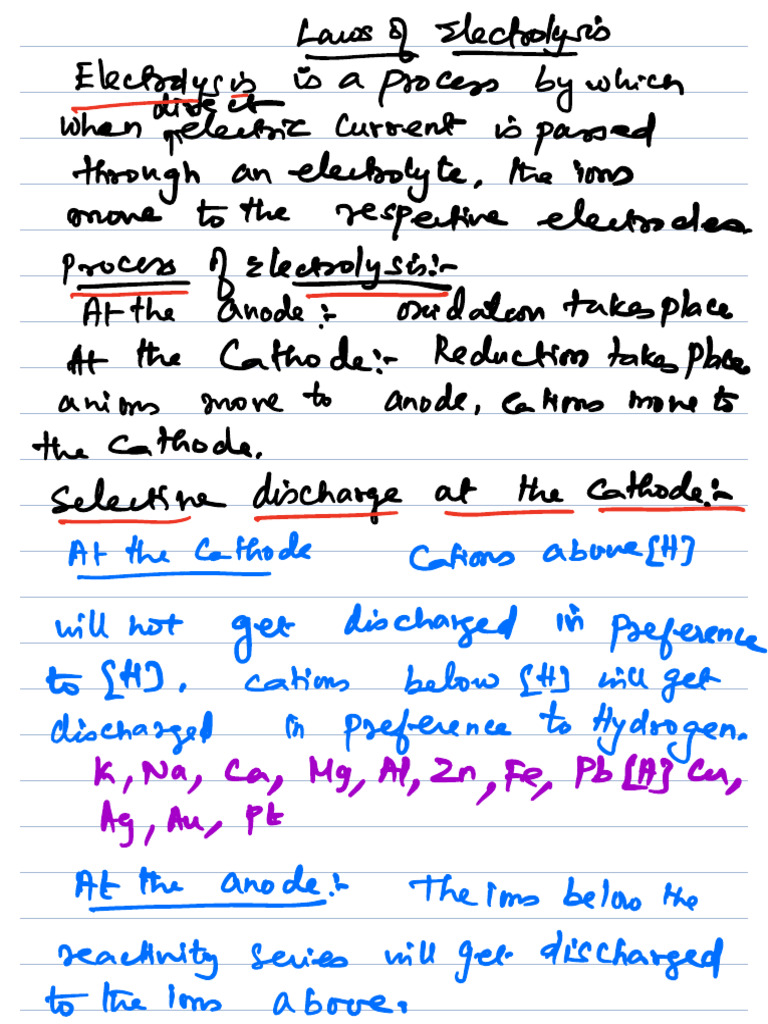 Laws of Electrolysis
Electrolysis is a process by which
when direct electric current is passed
through an electrolyte, the ions
move to the respective electrodes.
Process of Electrolysis:-
At the anode:- oxidation takes place
At the Cathode:- Reduction takes place
anions move to anode, cations move to
the cathode.
Selective discharge at the cathode:-
At the Cathode Cations above [H]
will not get discharged in preference
to [H]. cations below [H] will get
discharged in preference to Hydrogen.
K, Na, Ca, Mg, Al, Zn, Fe, Pb [H] Cu,
Ag, Au, Pt
At the anode:- The ions below the
reactivity series will get discharged
to the ions above.